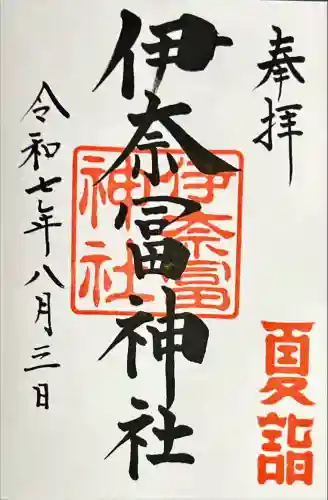 奉拝
夏詣
伊奈冨神社
伊奈冨
神社
令和七年八月三日